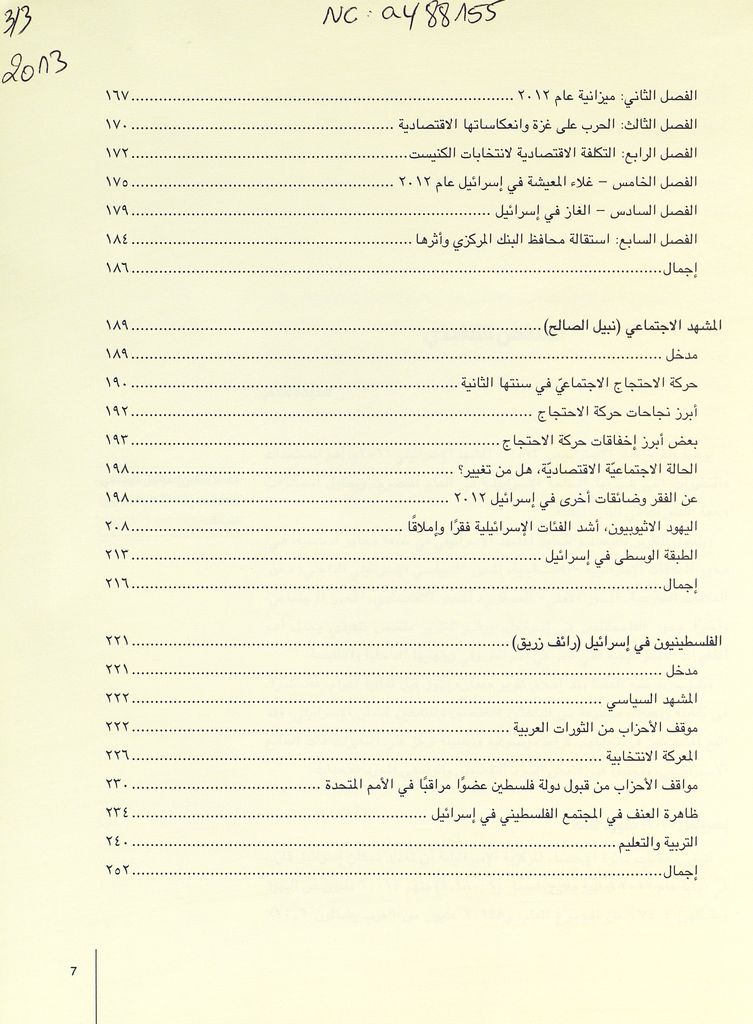 3/3
NC: a488155
2013
الفصل الثاني: ميزانية عام ٢٠١٢ ........ ١٦٧
الفصل الثالث: الحرب على غزة وانعكاساتها الاقتصادية ........ ١٧٠
الفصل الرابع: التكلفة الاقتصادية لانتخابات الكنيست ........ ١٧٢
الفصل الخامس – غلاء المعيشة في إسرائيل عام ٢٠١٢ ........ ١٧٥
الفصل السادس – الغاز في إسرائيل ........ ١٧٩
الفصل السابع: استقالة محافظ البنك المركزي وأثرها ........ ١٨٤
إجمال ........ ١٨٦
المشهد الاجتماعي (نبيل الصالح) ........ ١٨٩
مدخل ........ ١٨٩
حركة الاحتجاج الاجتماعيّ في سنتها الثانية ........ ١٩٠
أبرز نجاحات حركة الاحتجاج ........ ١٩٢
بعض أبرز إخفاقات حركة الاحتجاج ........ ١٩٣
الحالة الاجتماعيّة الاقتصاديّة، هل من تغيير؟ ........ ١٩٨
عن الفقر وضائقات أخرى في إسرائيل ٢٠١٢ ........ ١٩٨
اليهود الاثيوبيون، أشد الفئات الإسرائيلية فقرًا وإملاقًا ........ ٢٠٨
الطبقة الوسطى في إسرائيل ........ ٢١٣
إجمال ........ ٢١٦
الفلسطينيون في إسرائيل (رائف زريق) ........ ٢٢١
مدخل ........ ٢٢١
المشهد السياسي ........ ٢٢٢
موقف الأحزاب من الثورات العربية ........ ٢٢٢
المعركة الانتخابية ........ ٢٢٦
مواقف الأحزاب من قبول دولة فلسطين عضوًا مراقبًا في الأمم المتحدة ........ ٢٣٠
ظاهرة العنف في المجتمع الفلسطيني في إسرائيل ........ ٢٣٤
التربية والتعليم ........ ٢٤٠
إجمال ........ ٢٥٢
7